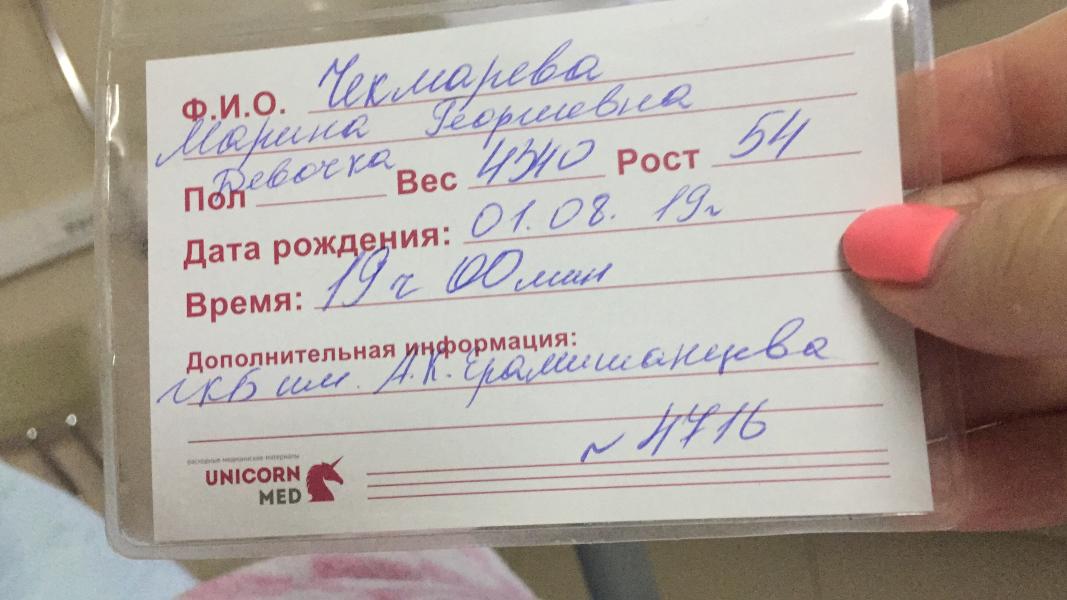 Ф.И.О. Чекмарева
Марина Георгиевна
Пол Девочка Вес 4340 Рост 54
Дата рождения: 01.08.19г
Время: 19ч 00мин
Дополнительная информация:
ГКБ им. А.К. Ерамишанцева
~ 4716
расходные медицинские материалы
UNICORN
MED